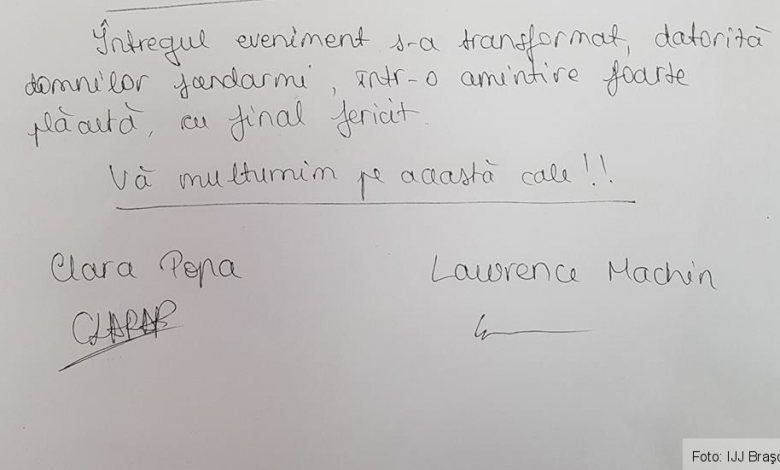 Întregul eveniment s-a transformat, datorită
domnilor jandarmi, într-o amintire foarte
plăcută, cu final fericit.
Vă multumim pe această cale!!
Clara Popa Lawrence Machin
CLARAP
Foto: IJJ Braşo